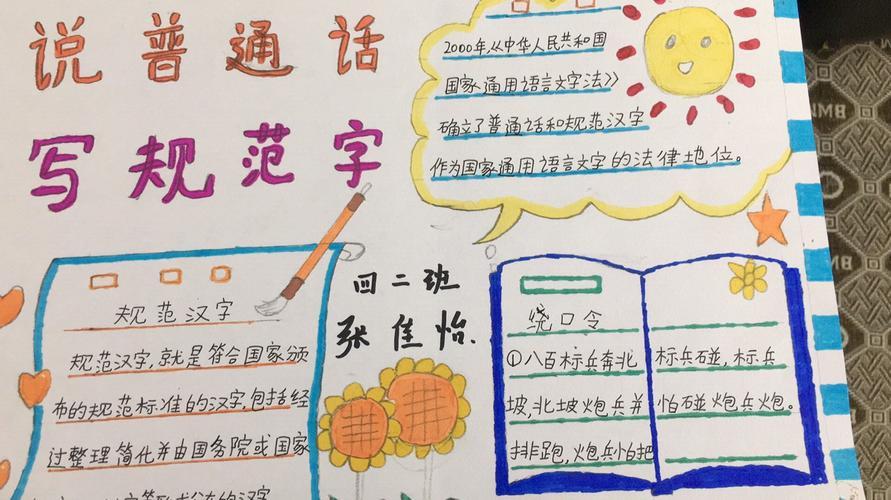 说普通话
写规范字
2000年,从中华人民共和国
国家通用语言文字法》
确立了普通话和规范汉字
作为国家通用语言文字的法律地位。
规范汉字
规范汉字,就是符合国家颁
布的规范标准的汉字,包括经
过整理简化并由国务院或国家
四二班
张佳怡.
绕口令
①八百标兵奔北
坡,北坡炮兵并
排跑,炮兵怕把
标兵碰,标兵
怕碰炮兵炮。